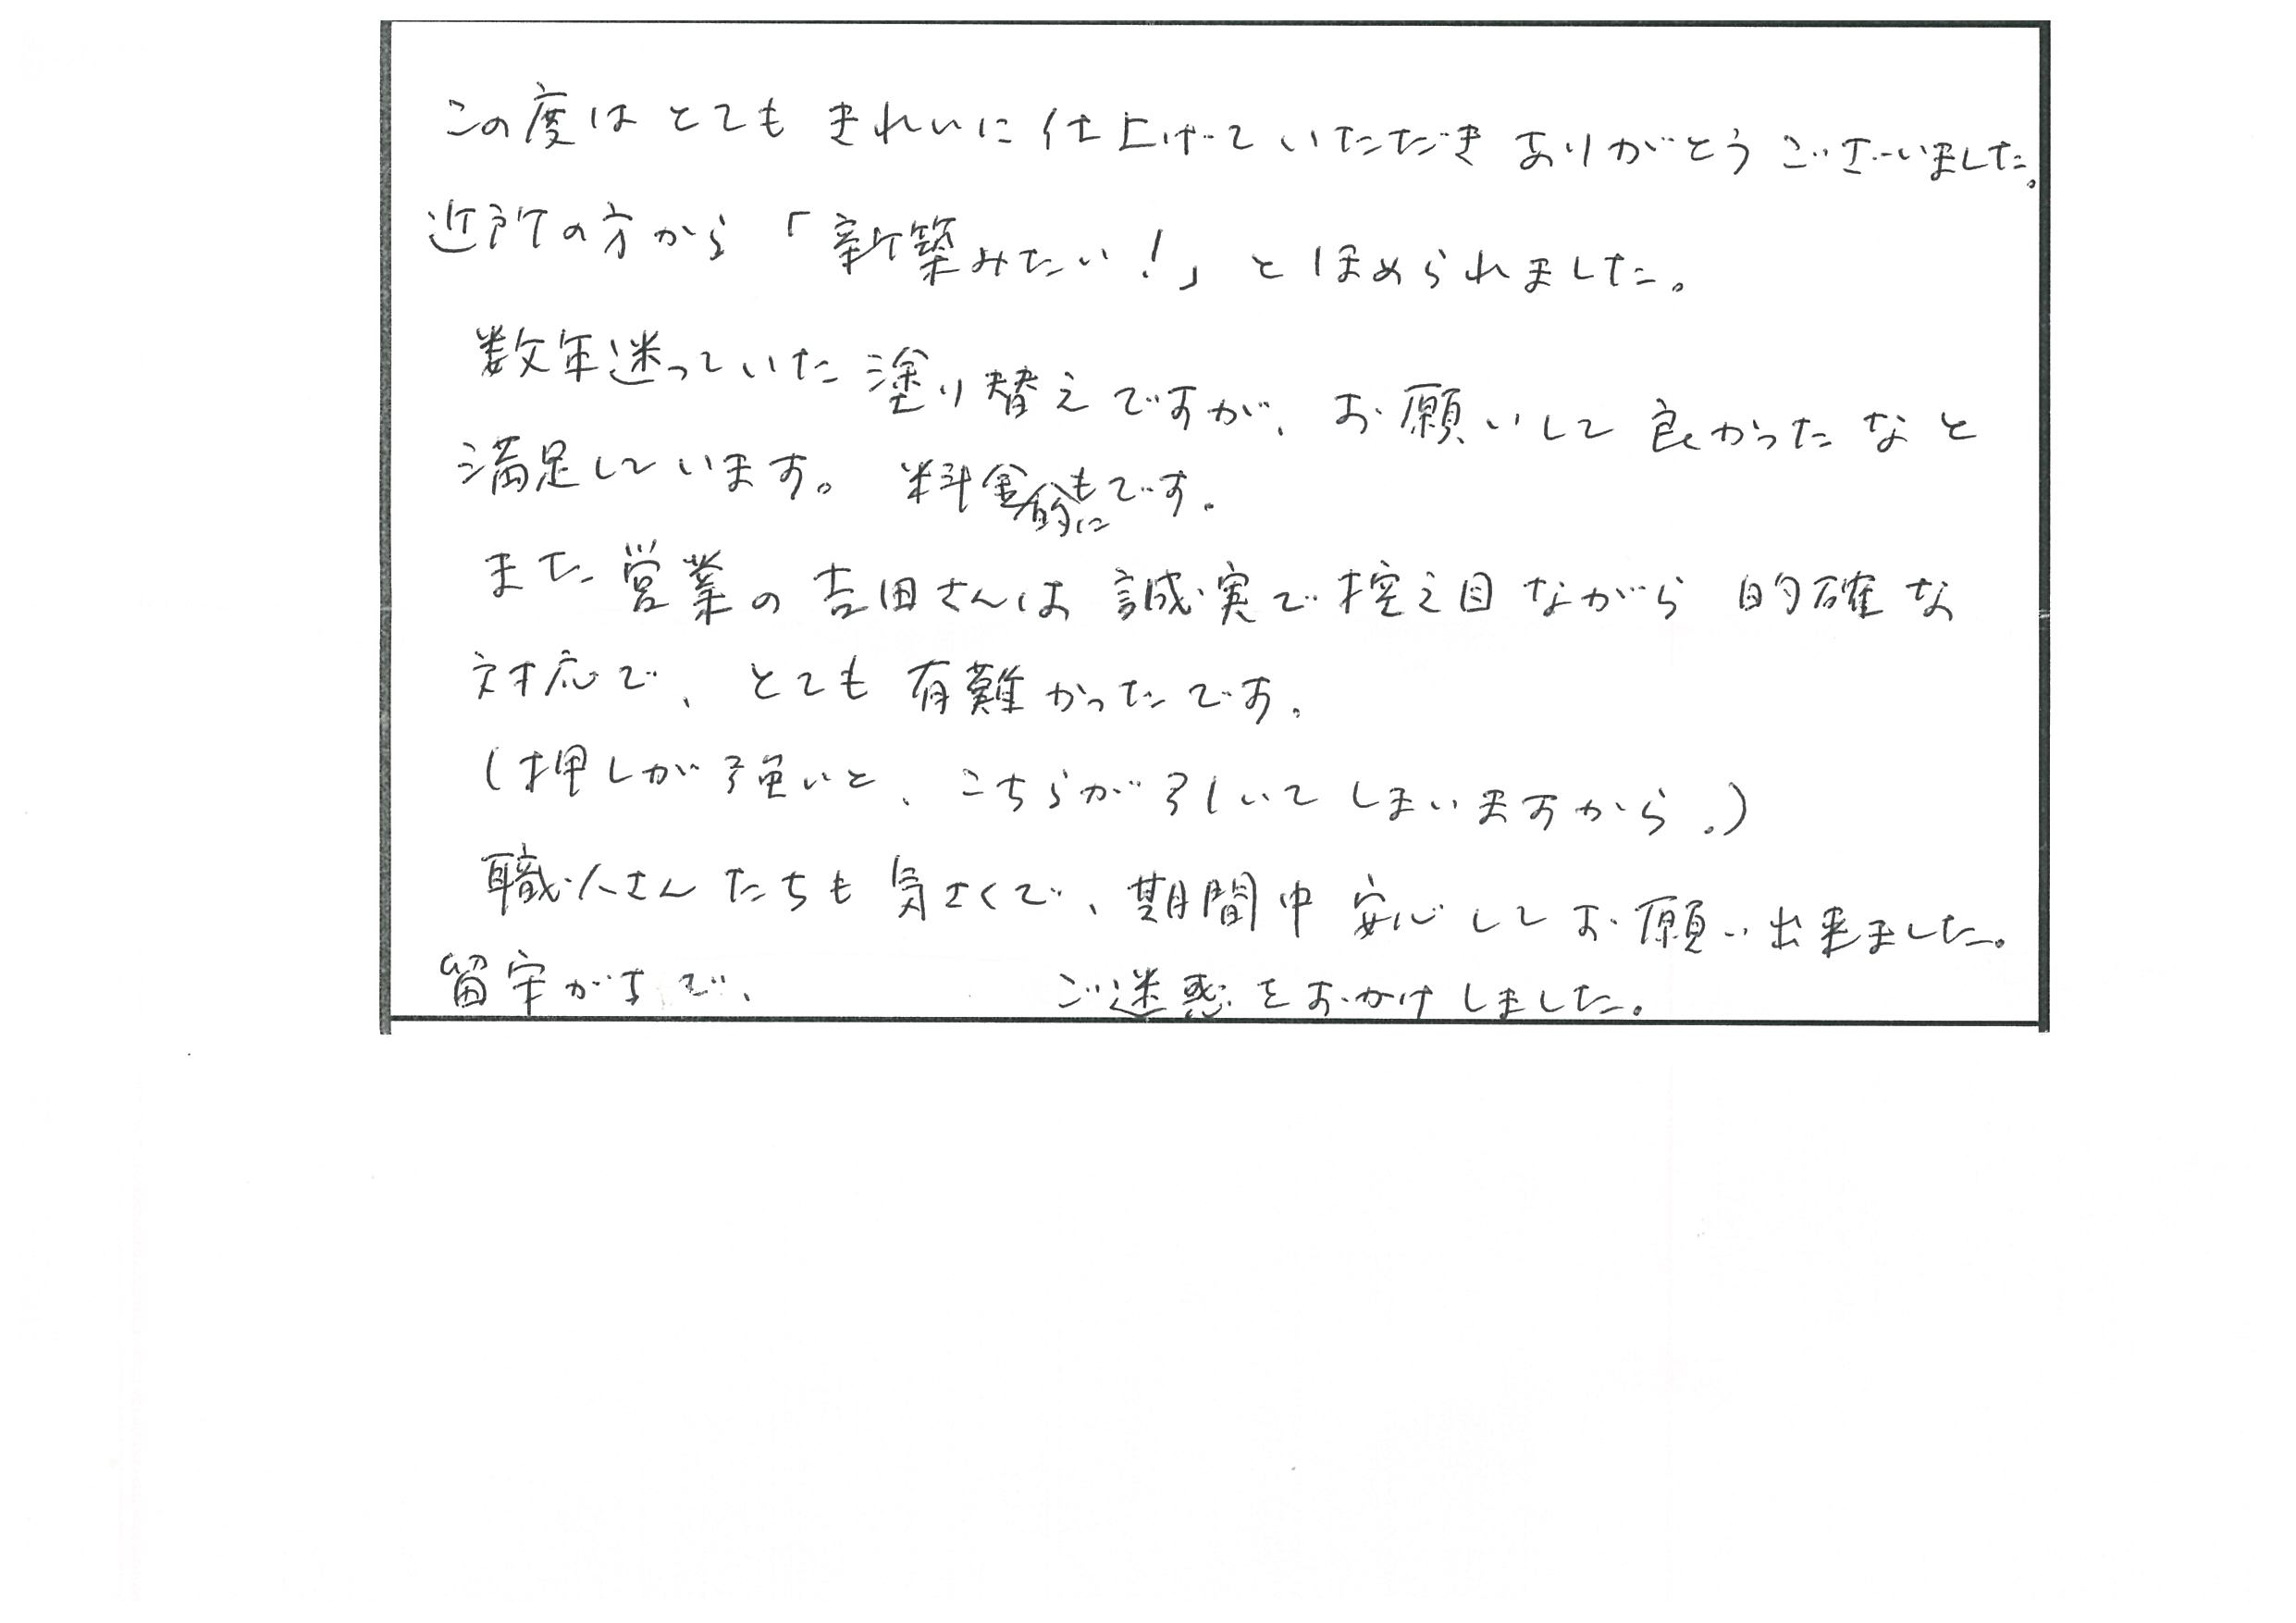 この度はとてもきれいに仕上げていただきありがとうございました。
近所の方から「新築みたい!」とほめられました。
数年迷っていた塗り替えですが、お願いして良かったなと
満足しています。料金的にもです。
また営業の吉田さんは誠実で控え目ながら的確な
対応で、とても有難かったです。
(押しが強いと、こちらが引いてしまいますから。)
職人さんたちも気さくで、期間中安心してお願い出来ました。
留守がちで、ご迷惑をおかけしました。